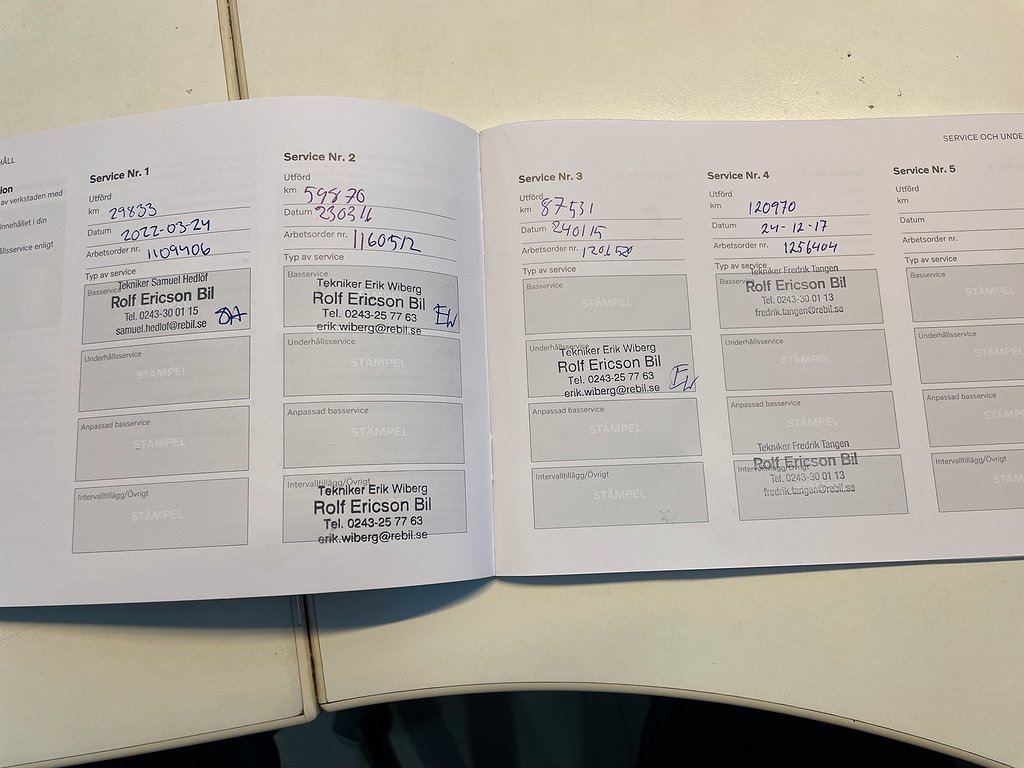 HÅLL
ion
av verkstaden med
nnehållet i din
ållsservice enligt
Service Nr. 1
Utförd
km 29833
Datum 2022-03-24
Arbetsorder nr. 1109406
Typ av service
Basservice
Tekniker Samuel Hedlöf
Rolf Ericson Bil
Tel. 0243-30 01 15
samuel.hedlof@rebil.se
Underhållsservice
STÄMPEL
Anpassad basservice
STÄMPEL
Intervalltillägg/Övrigt
STÄMPEL
Service Nr. 2
Utförd
km 59870
Datum
Arbetsorder nr. 1160512
Typ av service
Basservice
Tekniker Erik Wiberg
Rolf Ericson Bil
Tel. 0243-25 77 63
erik.wiberg@rebil.se
EW
Underhållsservice
STÄMPEL
Anpassad basservice
STÄMPEL
Intervalltillägg/Övrigt
Tekniker Erik Wiberg
Rolf Ericson Bil
Tel. 0243-25 77 63
erik.wiberg@rebil.se
SERVICE OCH UNDE
Service Nr. 3
Utförd
km 87531
Datum 240115
Arbetsorder nr.
Typ av service
Basservice
STÄMPEL
Underhållsservice
Tekniker Erik Wiberg
Rolf Ericson Bil
Tel. 0243-25 77 63
erik.wiberg@rebil.se
EW
Anpassad basservice
STÄMPEL
Intervalltillägg/Övrigt
STÄMPEL
Service Nr. 4
Utförd
km 120970
Datum 24-12-17
Arbetsorder nr. 1256404
Typ av service
Basservice
Tekniker Fredrik Tangen
Rolf Ericson Bil
Tel. 0243-30 01 13
fredrik.tangen@rebil.se
Underhållsservice
STÄMPEL
Anpassad basservice
Tekniker Fredrik Tangen
Rolf Ericson Bil
Intervalltillägg/Övrigt
Tel. 0243-30 01 13
fredrik.tangen@rebil.se
Service Nr. 5
Utförd
km
Datum
Arbetsorder nr.
Typ av service
Basservice
STÄMPEL
Underhållsservice
STÄMP
Anpassad basservice
STÄMP
Intervalltillägg/Övrigt
STÄM